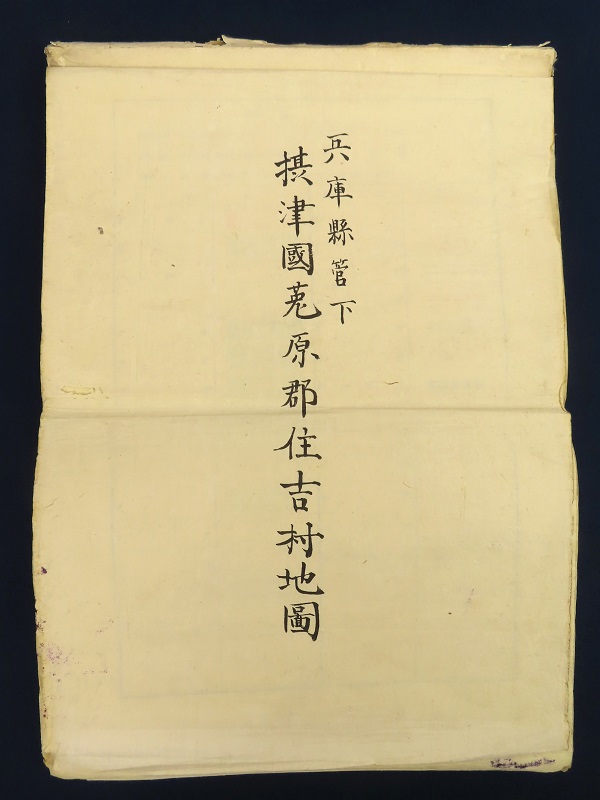 兵庫縣管下
摂津國菟原郡住吉村地圖